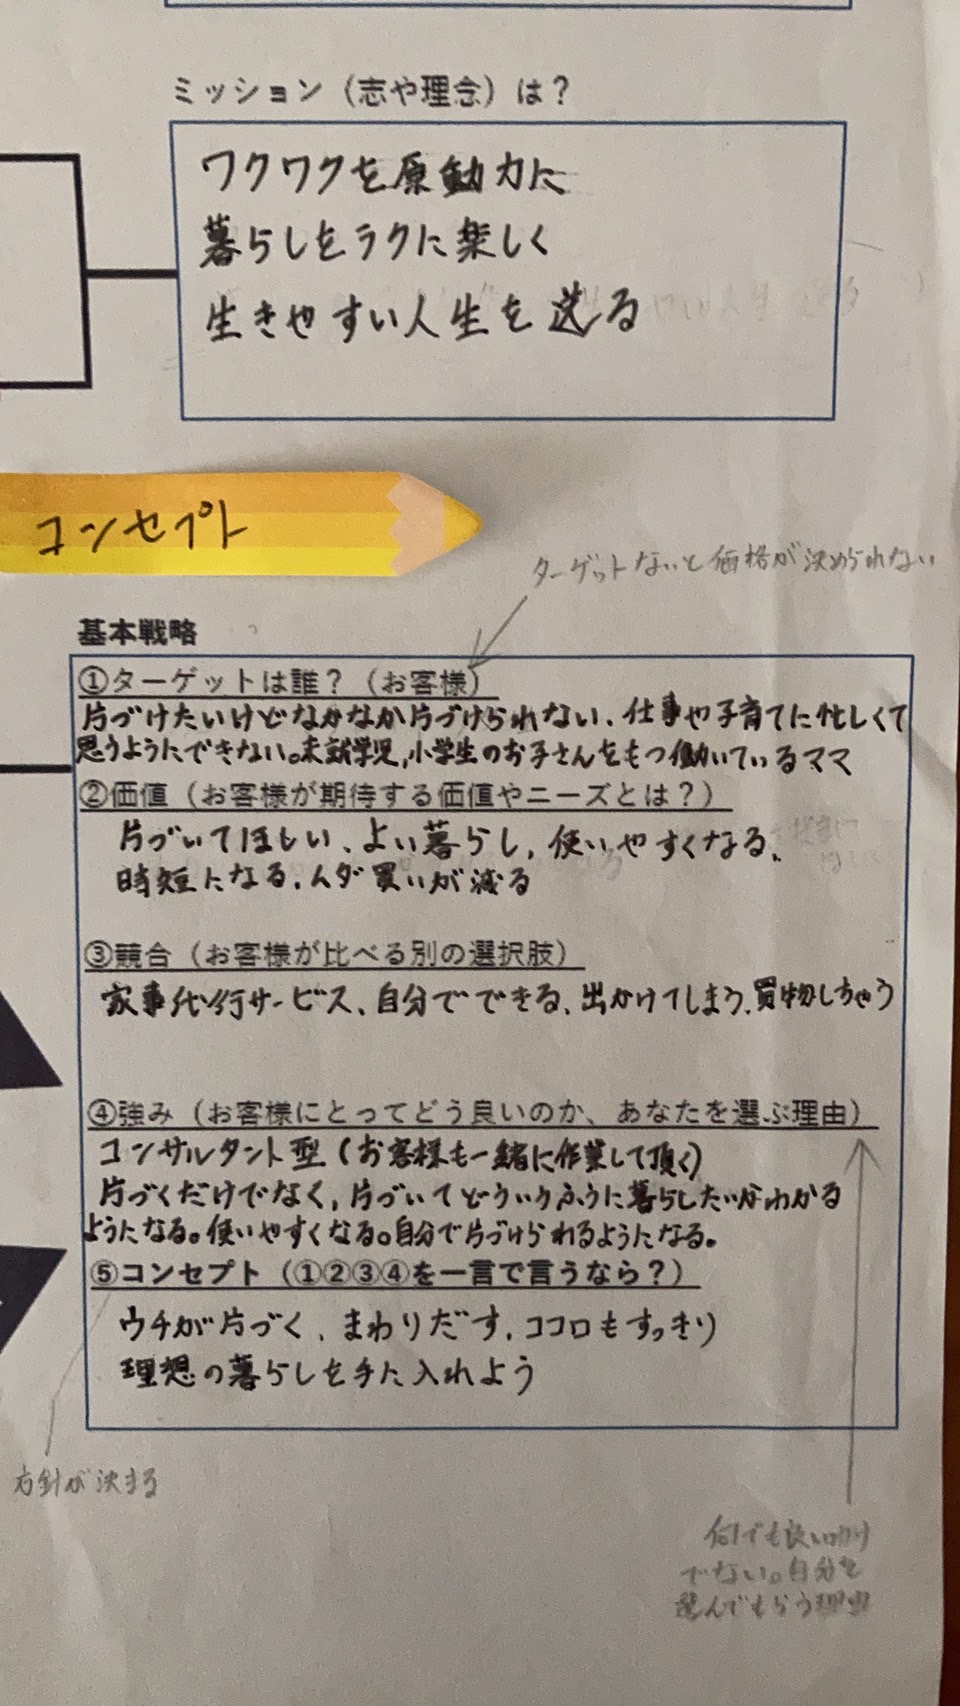 ミッション（志や理念）は？
ワクワクを原動力に
暮らしをラクに楽しく
生きやすい人生を送る
コンセプト
ターゲットないと価格が決められない
基本戦略
①ターゲットは誰？（お客様）
片づけたいけどなかなか片づけられない、仕事や子育てに忙しくて
思うようにできない。未就学児,小学生のお子さんをもつ働いているママ
②価値（お客様が期待する価値やニーズとは？）
片づいてほしい、よい暮らし,使いやすくなる、
時短になる、ムダ買いが減る
③競合（お客様が比べる別の選択肢）
家事代行サービス、自分でできる、出かけてしまう、買物しちゃう
④強み（お客様にとってどう良いのか、あなたを選ぶ理由）
コンサルタント型(お客様も一緒に作業して頂く)
片づくだけでなく,片づいてどういうふうに暮らしたいかわかる
ようになる。使いやすくなる。自分で片づけられるようになる。
⑤コンセプト（①②③④を一言で言うなら？）
ウチが片づく、まわりだす,ココロもすっきり
理想の暮らしを手に入れよう
方針が決まる
何でも良いわけ
でない。自分を
選んでもらう理由